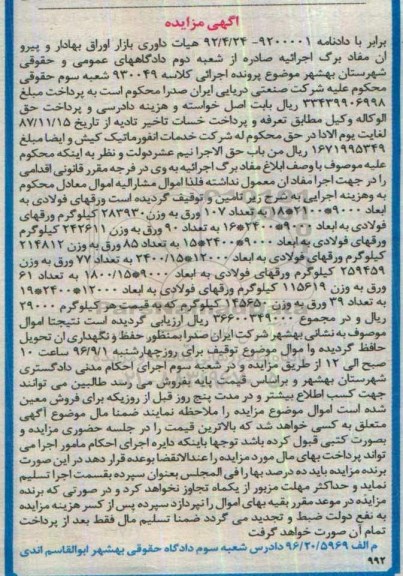 آگهی مزایده
برابر با دادنامه ۹۲۰۰۰۰۱- ۹۲/۴/۲۴ هیات داوری بازار اوراق بهادار و پیرو
ان مفاد برگ اجرائیه صادره از شعبه دوم دادگاههای عمومی و حقوقی
شهرستان بهشهر موضوع پرونده اجرائی کلاسه ۹۳۰۰۴۹ شعبه سوم حقوقی
محکوم علیه شرکت صنعتی دریایی ایران صدرا محکوم است به پرداخت مبلغ
۳۳۴۳۹۹۰۶۹۹۸ ریال بابت اصل خواسته و هزینه دادرسی و پرداخت حق
الوکاله وکیل مطابق تعرفه و پرداخت خسات تاخیر تادیه از تاریخ ۸۷/۱۱/۱۵
لغایت یوم الادا در حق محکوم له شرکت خدمات انفورماتیک کیش و ایضا مبلغ
۱۶۷۱۹۹۵۳۴۹ ریال من باب حق الاجرا نیم عشردولت و نظر به اینکه محکوم
علیه موصوف با وصف ابلاغ مفاد برگ اجرائیه به وی در فرجه مقرر قانونی اقدامی
را در جهت اجرا مفاد ان معمول نداشته فلذا اموال مشارالیه اموال معادل محکوم
به وهزینه اجرایی به شرح زیر تامین و توقیف گردیده است ورقهای فولادی به
ابعاد ۹۰۰۰*۲۱۰۰*۱۸ به تعداد ۱۰۷ ورق به وزن ۲۸۳۹۳۰ کیلوگرم ورقهای
فولادی به ابعاد ۹۰۰۰*۲۴۰۰*۱۶ به تعداد ۹۰ ورق به وزن ۲۴۲۶۱۱ کیلوگرم
ورقهای فولادی به ابعاد ۹۰۰۰*۲۴۰۰*۱۵ به تعداد ۸۵ ورق به وزن ۲۱۴۸۱۲
کیلوگرم ورقهای فولادی به ابعاد ۱۲۰۰۰*۲۴۰۰/۱۵ به تعداد ۷۷ ورق به وزن
۲۵۹۴۵۹ کیلوگرم ورقهای فولادی به ابعاد ۹۰۰۰*۱۸۰۰/۱۵ به تعداد ۶۱
ورق به وزن ۱۱۵۶۱۹ کیلوگرم ورقهای فولادی به ابعاد ۱۲۰۰۰*۲۴۰۰*۹۹
به تعداد ۳۹ ورق به وزن ۱۴۵۶۵۰ کیلوگرم که به قیمت هر کیلوگرم ۲۹۰۰۰
ریال و در مجموع ۳۶۶۰۰۳۴۹۰۰۰ ریال ارزیابی گردیده است نتیجتا اموال
موصوف به نشانی بهشهر شرکت ایران صدرا بمنظور حفظ و نگهداری ان تحویل
حافظ گردیده وا موال موضوع توقیف برای روزچهارشنبه ۹۶/۹/۱ ساعت ۱۰
صبح الی ۱۲ از طریق مزایده و در شعبه سوم اجرای احکام مدنی دادگستری
شهرستان بهشهر و براساس قیمت پایه بفروش می رسد طالبین می توانند
جهت کسب اطلاع بیشتر و در مدت پنج روز قبل از روزیکه برای فروش معین
شده است اموال موضوع مزایده را ملاحظه نمایند ضمنا مال موضوع آگهی
متعلق به کسی خواهد شد که بالاترین قیمت را در جلسه حضوری مزایده و
بصورت کتبی قبول کرده باشد توجها باینکه دایره اجرای احکام مامور اجرا می
تواند پرداخت بهای مال مورد مزایده را عندالاقتضا بوعده قرار دهد در این صورت
برنده مزایده باید ده درصد بها را فی المجلس بعنوان سپرده بقسمت اجرا تسلیم
نماید و حداکثر مهلت مزبور از یکماه تجاوز نخواهد کرد و در صورتی که برنده
مزایده در موعد مقرر بقیه بهای اموال را نپردازد سپرده پس از کسر هزینه مزایده
به نفع دولت ضبط و تجدید می گردد ضمنا تسلیم مال فقط بعد از پرداخت
تمام آن صورت خواهد گرفت
م الف ۹۶/۲۰/۵۹۶۹ دادرس شعبه سوم دادگاه حقوقی بهشهر ابوالقاسم اندی
۹۹۲